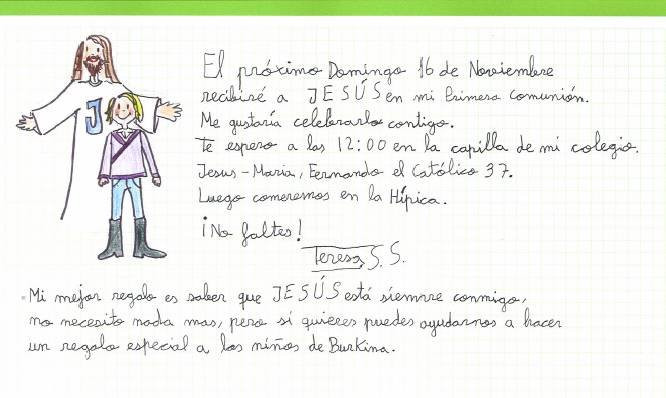 J
El próximo Domingo 16 de Noviembre
recibiré a JESÚS en mi Primera comunión.
Me gustaría celebrarlo contigo.
Te espero a las 12:00 en la capilla de mi colegio.
Jesus - Maria, Fernando el Católico 37.
Luego comeremos en la Hípica.
¡No faltes!
Teresa S. S.
Mi mejor regalo es saber que JESÚS está siempre conmigo,
no necesito nada mas, pero si quieres puedes ayudarnos a hacer
un regalo especial a los niños de Burkina.